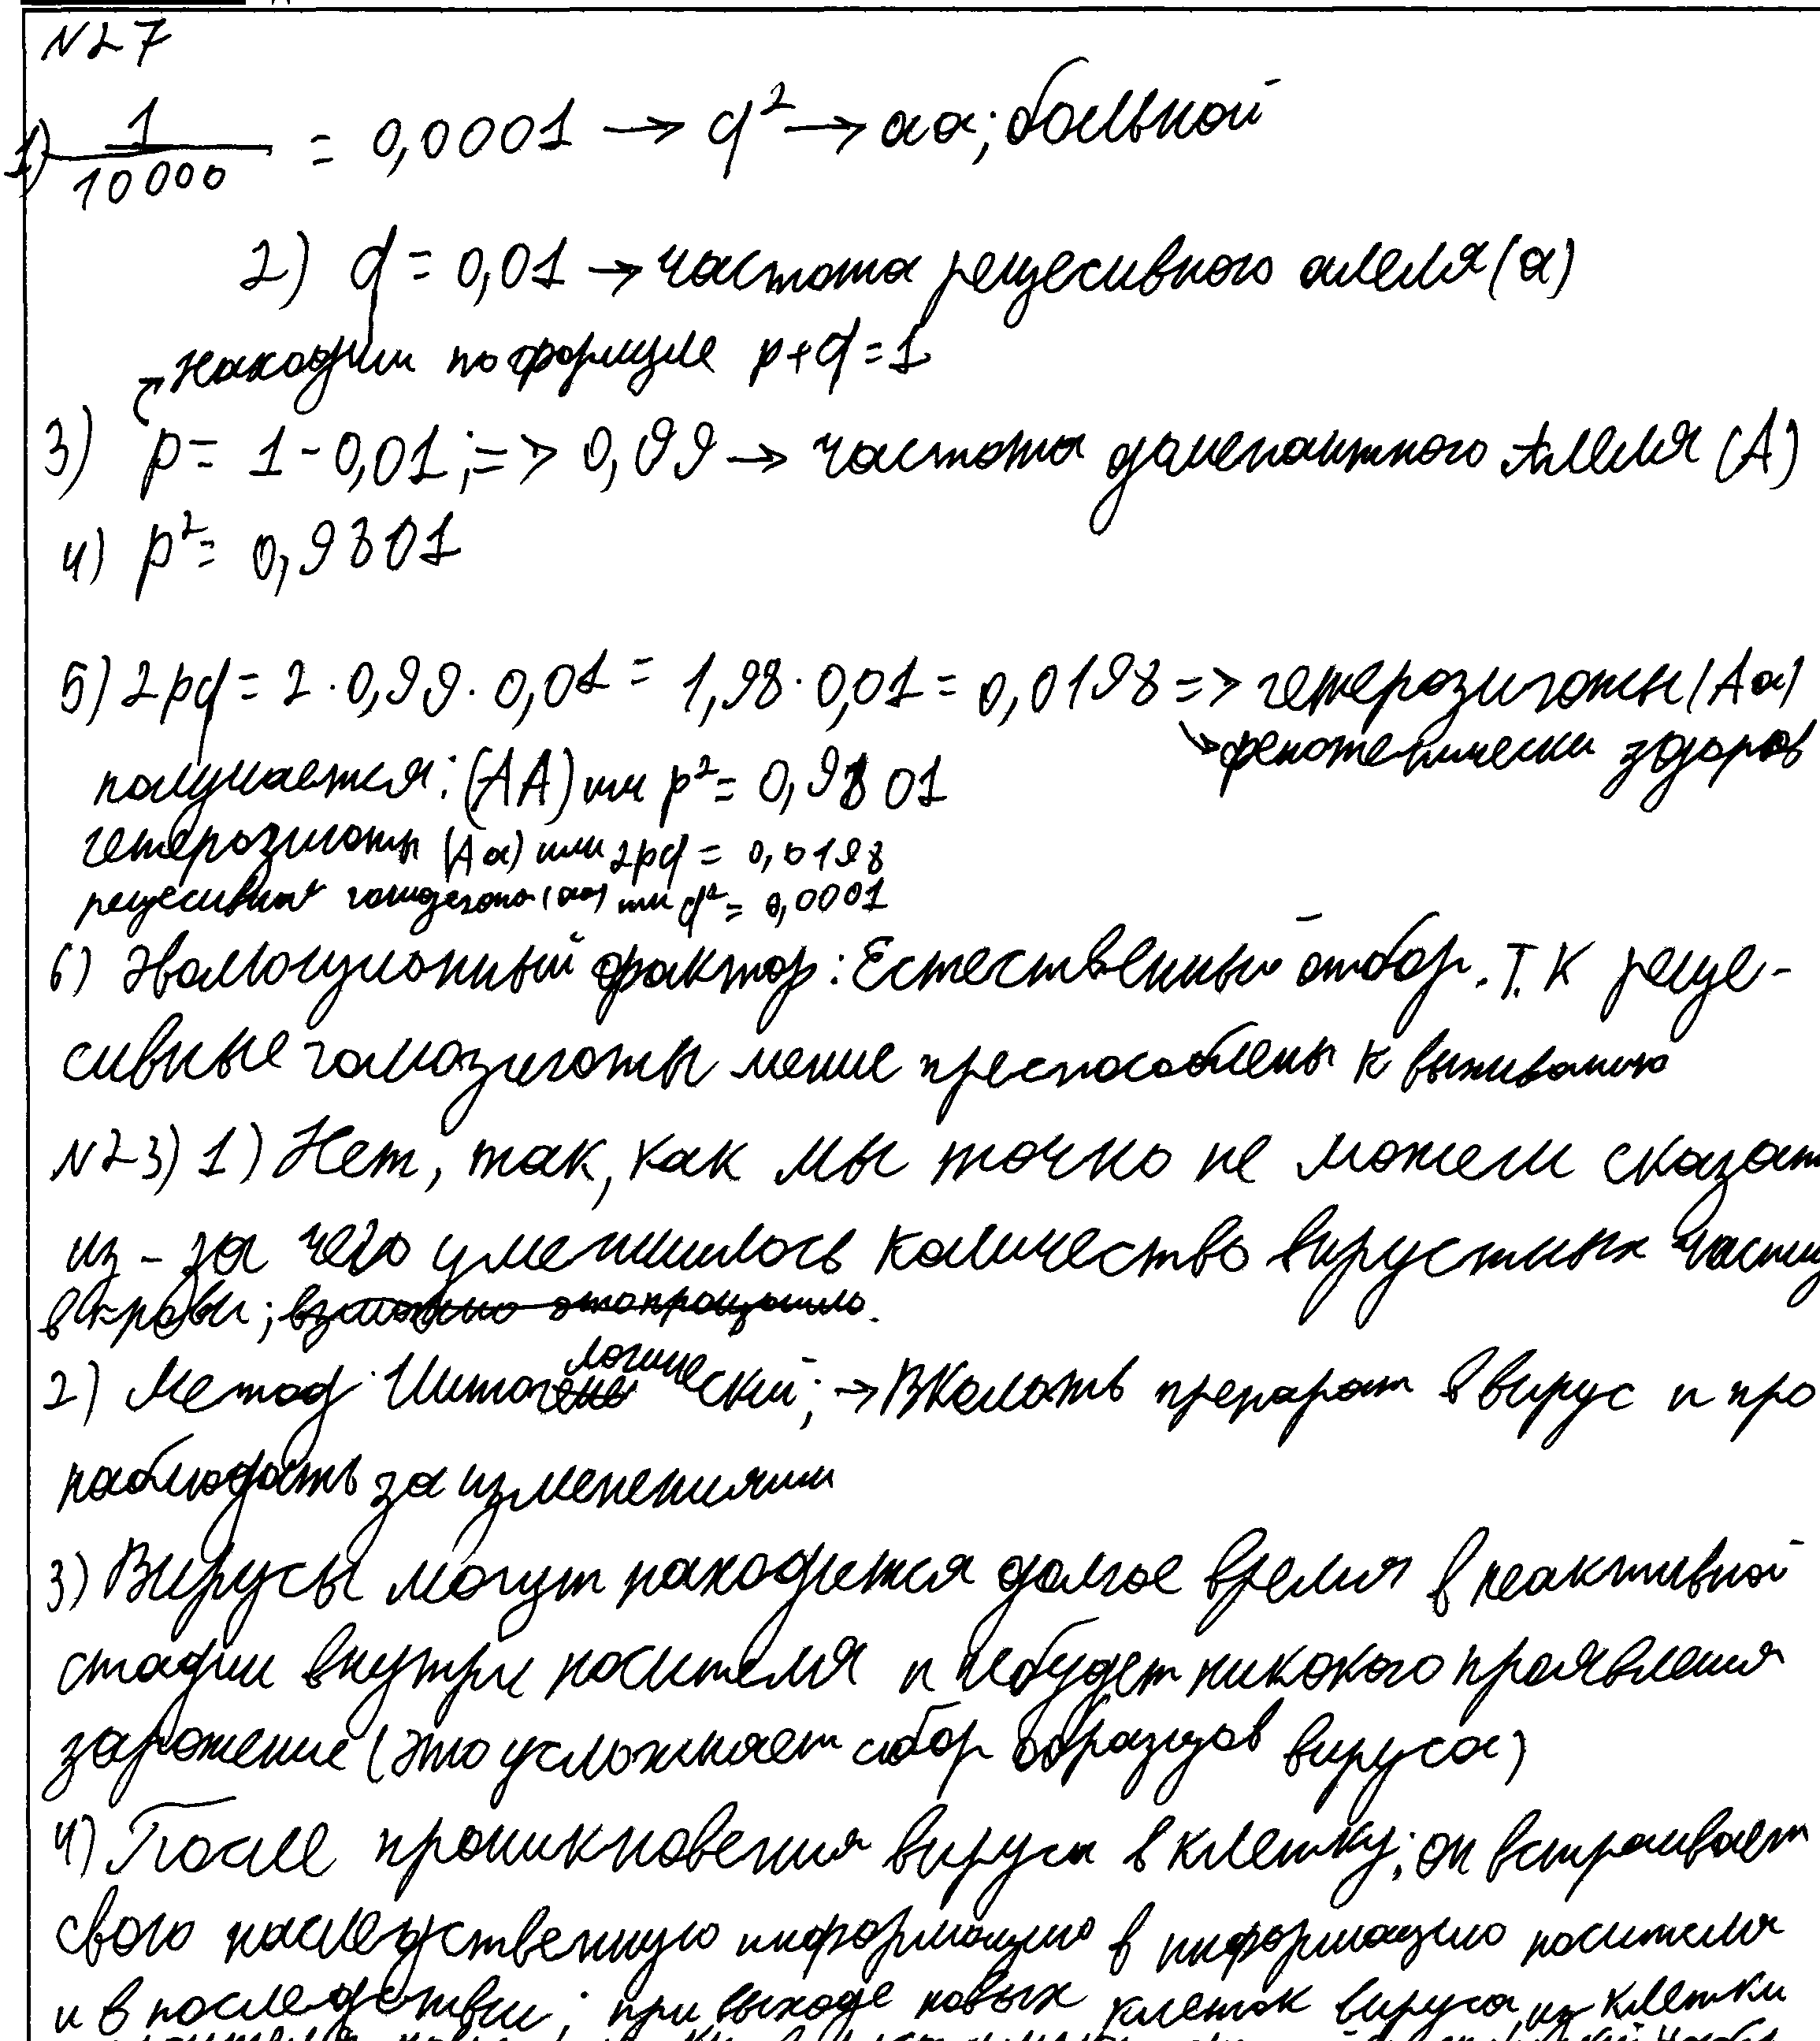 N27
1) 1/10000 = 0,0001 → q² → аа; больной
2) q = 0,01 → частота рецесивного алеля (а)
находим по формуле p+q=1
3) p = 1 - 0,01; => 0,99 → частота доменантного Алеля (А)
4) p² = 0,9801
5) 2pq = 2 · 0,99 · 0,01 = 1,98 · 0,01 = 0,0198 => гетерозиготы (Аа)
фенотепически здоров
получается: (АА) или p² = 0,9801
гетерозиготы (Аа) или 2pq = 0,0198
рецесивная гомозигота (аа) или q² = 0,0001
6) Эволюционный фактор: Естественный отбор. Т.К реце-
сивные гомозиготы менее преспособлены к выживанию
N23) 1) Нет, так, как мы точно не можем сказат
из-за чего уменшилось количество вирустных частиц
в крови;
2) Метод Цитологический; → Вколоть препарат в вирус и про
наблюдать за изменениями
3) Вирусы могут находится долгое время в неактивной
стадии внутри носителя и небудет никокого проявления
заражение (это усложняет сбор образцов вируса)
4) После проникновения вируса в клетку; он встраивает
свою наследственную информацию в информацию носителя
и в последствии; при выходе новых клеток вируса из клетки